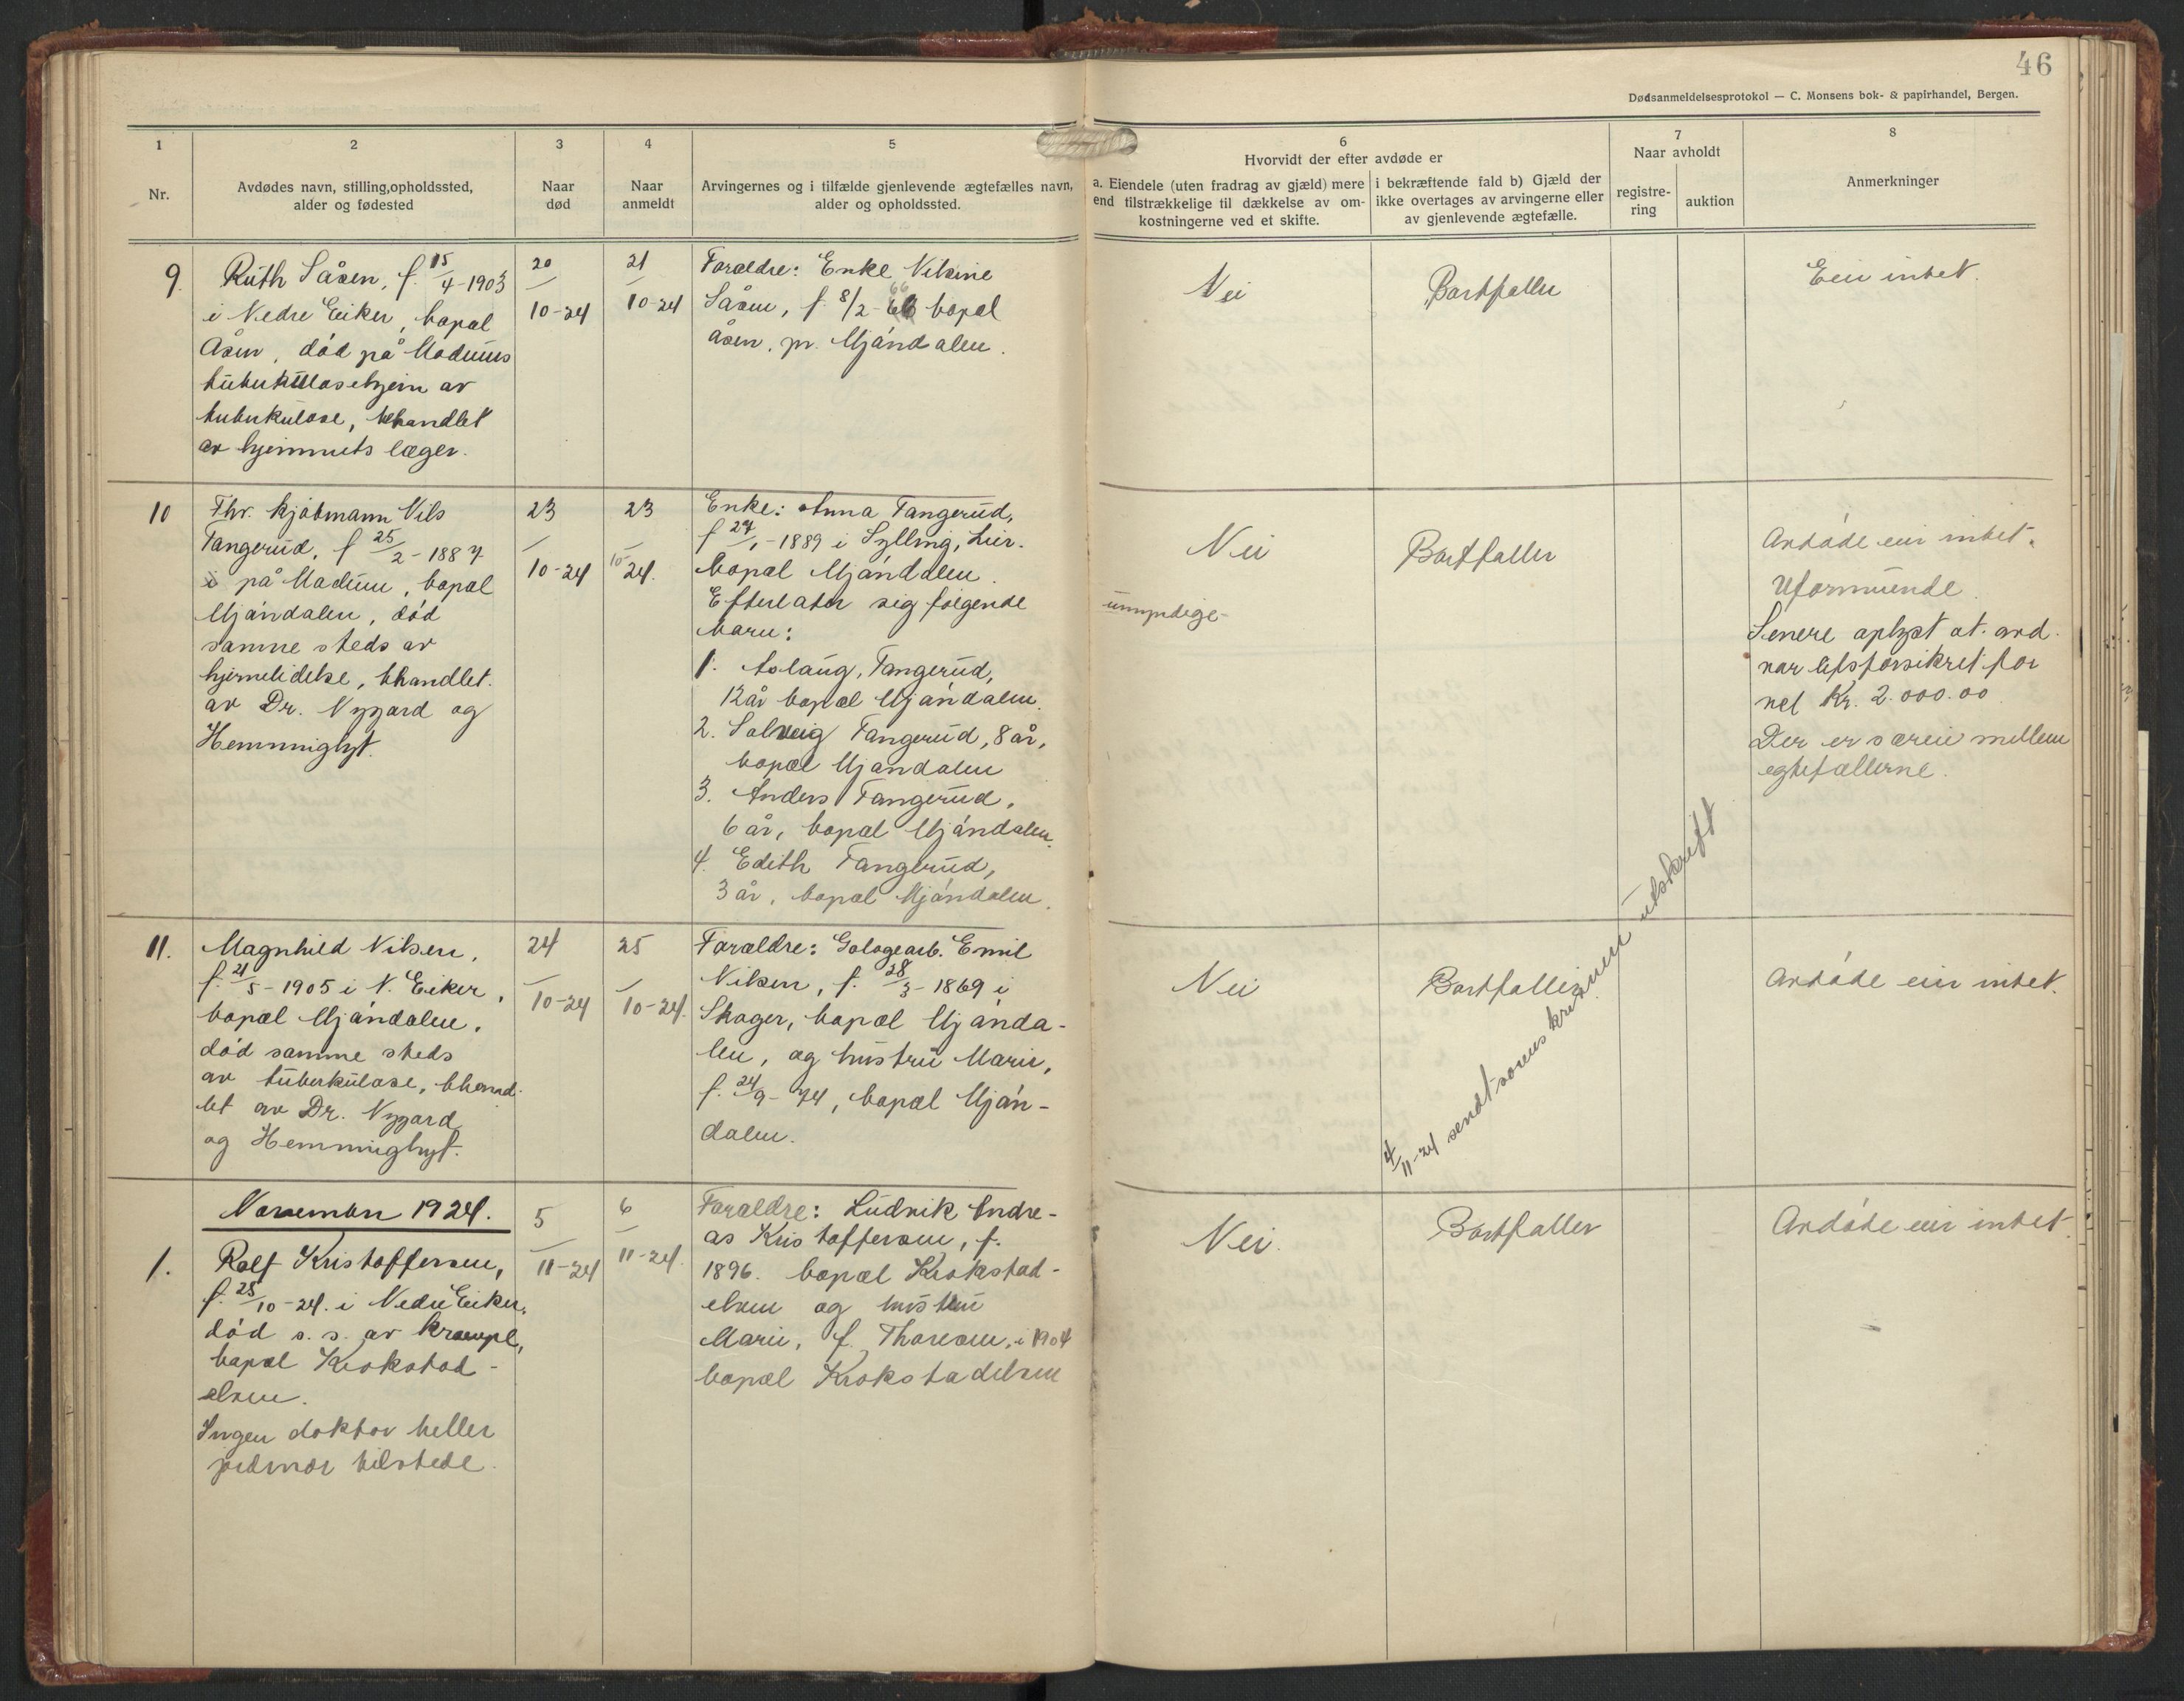 46
Dødsanmeldelsesprotokol — C. Monsens bok- & papirhandel, Bergen.
1
Nr.
2
Avdødes navn, stilling, opholdssted,
alder og fødested
3
Naar
død
4
Naar
anmeldt
5
Arvingernes og i tilfælde gjenlevende ægtefælles navn,
alder og opholdssted.
6
Hvorvidt der efter avdøde er
a. Eiendele (uten fradrag av gjæld) mere
end tilstrækkelige til dækkelse av om-
kostningerne ved et skifte.
i bekræftende fald b) Gjæld der
ikke overtages av arvingerne eller
av gjenlevende ægtefælle.
7
Naar avholdt
registre-
ring
auktion
8
Anmerkninger
9.
Ruth Såsen, f. 15/4-1903
i Nedre Eiker, bopæl
Åsen, død på Modums
tuberkulosehjem av
tuberkulose, behandlet
av hjemmets læger.
20/10-24
21/10-24
Forældre: Enke Nilsine
Såsen, f. 8/2-66 bopæl
åsen, pr. Mjøndalen.
Nei
Bortfaller
Eier intet.
10
Fhv. kjøbmann Nils
Tangerud, f 25/2-1887
på Modum, bopæl
Mjøndalen, død
samme steds av
hjernelidelse, behandlet.
av Dr. Nygård og
Hemminghyt.
23/10-24
23/10 24.
Enke: Anna Tangerud,
f 27/1-1889 i Sylling, Lier.
bopæl Mjøndalen.
Efterlater sig følgende
barn:
1. Aslaug, Tangerud,
12 år bopæl Mjøndalen.
2. Solveig Tangerud, 8 år,
bopæl Mjøndalen
3. Anders Tangerud,
6 år, bopæl Mjøndalen.
4. Edith Tangerud,
3 år, bopæl Mjøndalen.
Nei
umyndige-
Bortfaller
Avdøde eier intet.
Uformuende.
Senere oplyst at avd.
var livsforsikret for
vel Kr. 2.000.00
Der er særeie mellem
egtefællerne.
4/11-24 sendt sorenskriveren utskrift
11.
Magnhild Nilsen,
f. 21/5-1905 i N. Eiker,
bopæl Mjøndalen,
død samme steds
av tuberkulose, behand-
let av Dr. Nygård
og Hemminghyt.
24/10-24
25/10-24.
Forældre: Galogearb. Emil
Nilsen, f. 28/3-1869 i
Skoger, bopæl Mjønda-
len, og hustru Marie,
f. 24/9-74, bopæl Mjøn-
dalen.
Nei
Bortfaller
Avdøde eier intet.
November 1924.
1.
Rolf Kristoffersen,
f. 25/10-24. i Nedre Eiker,
død s. s. av krampe,
bopæl Krokstad-
elven.
Ingen doktor heller
jordmor tilstede.
5/11-24
6/11-24.
Forældre: Ludvik Andre-
as Kristoffersen, f.
1896. bopæl Krokstad-
elven og hustru
Marie, f. Thoresen, i 1904
bopæl Krokstadelven
Nei.
Bortfaller
Avdøde eier intet.